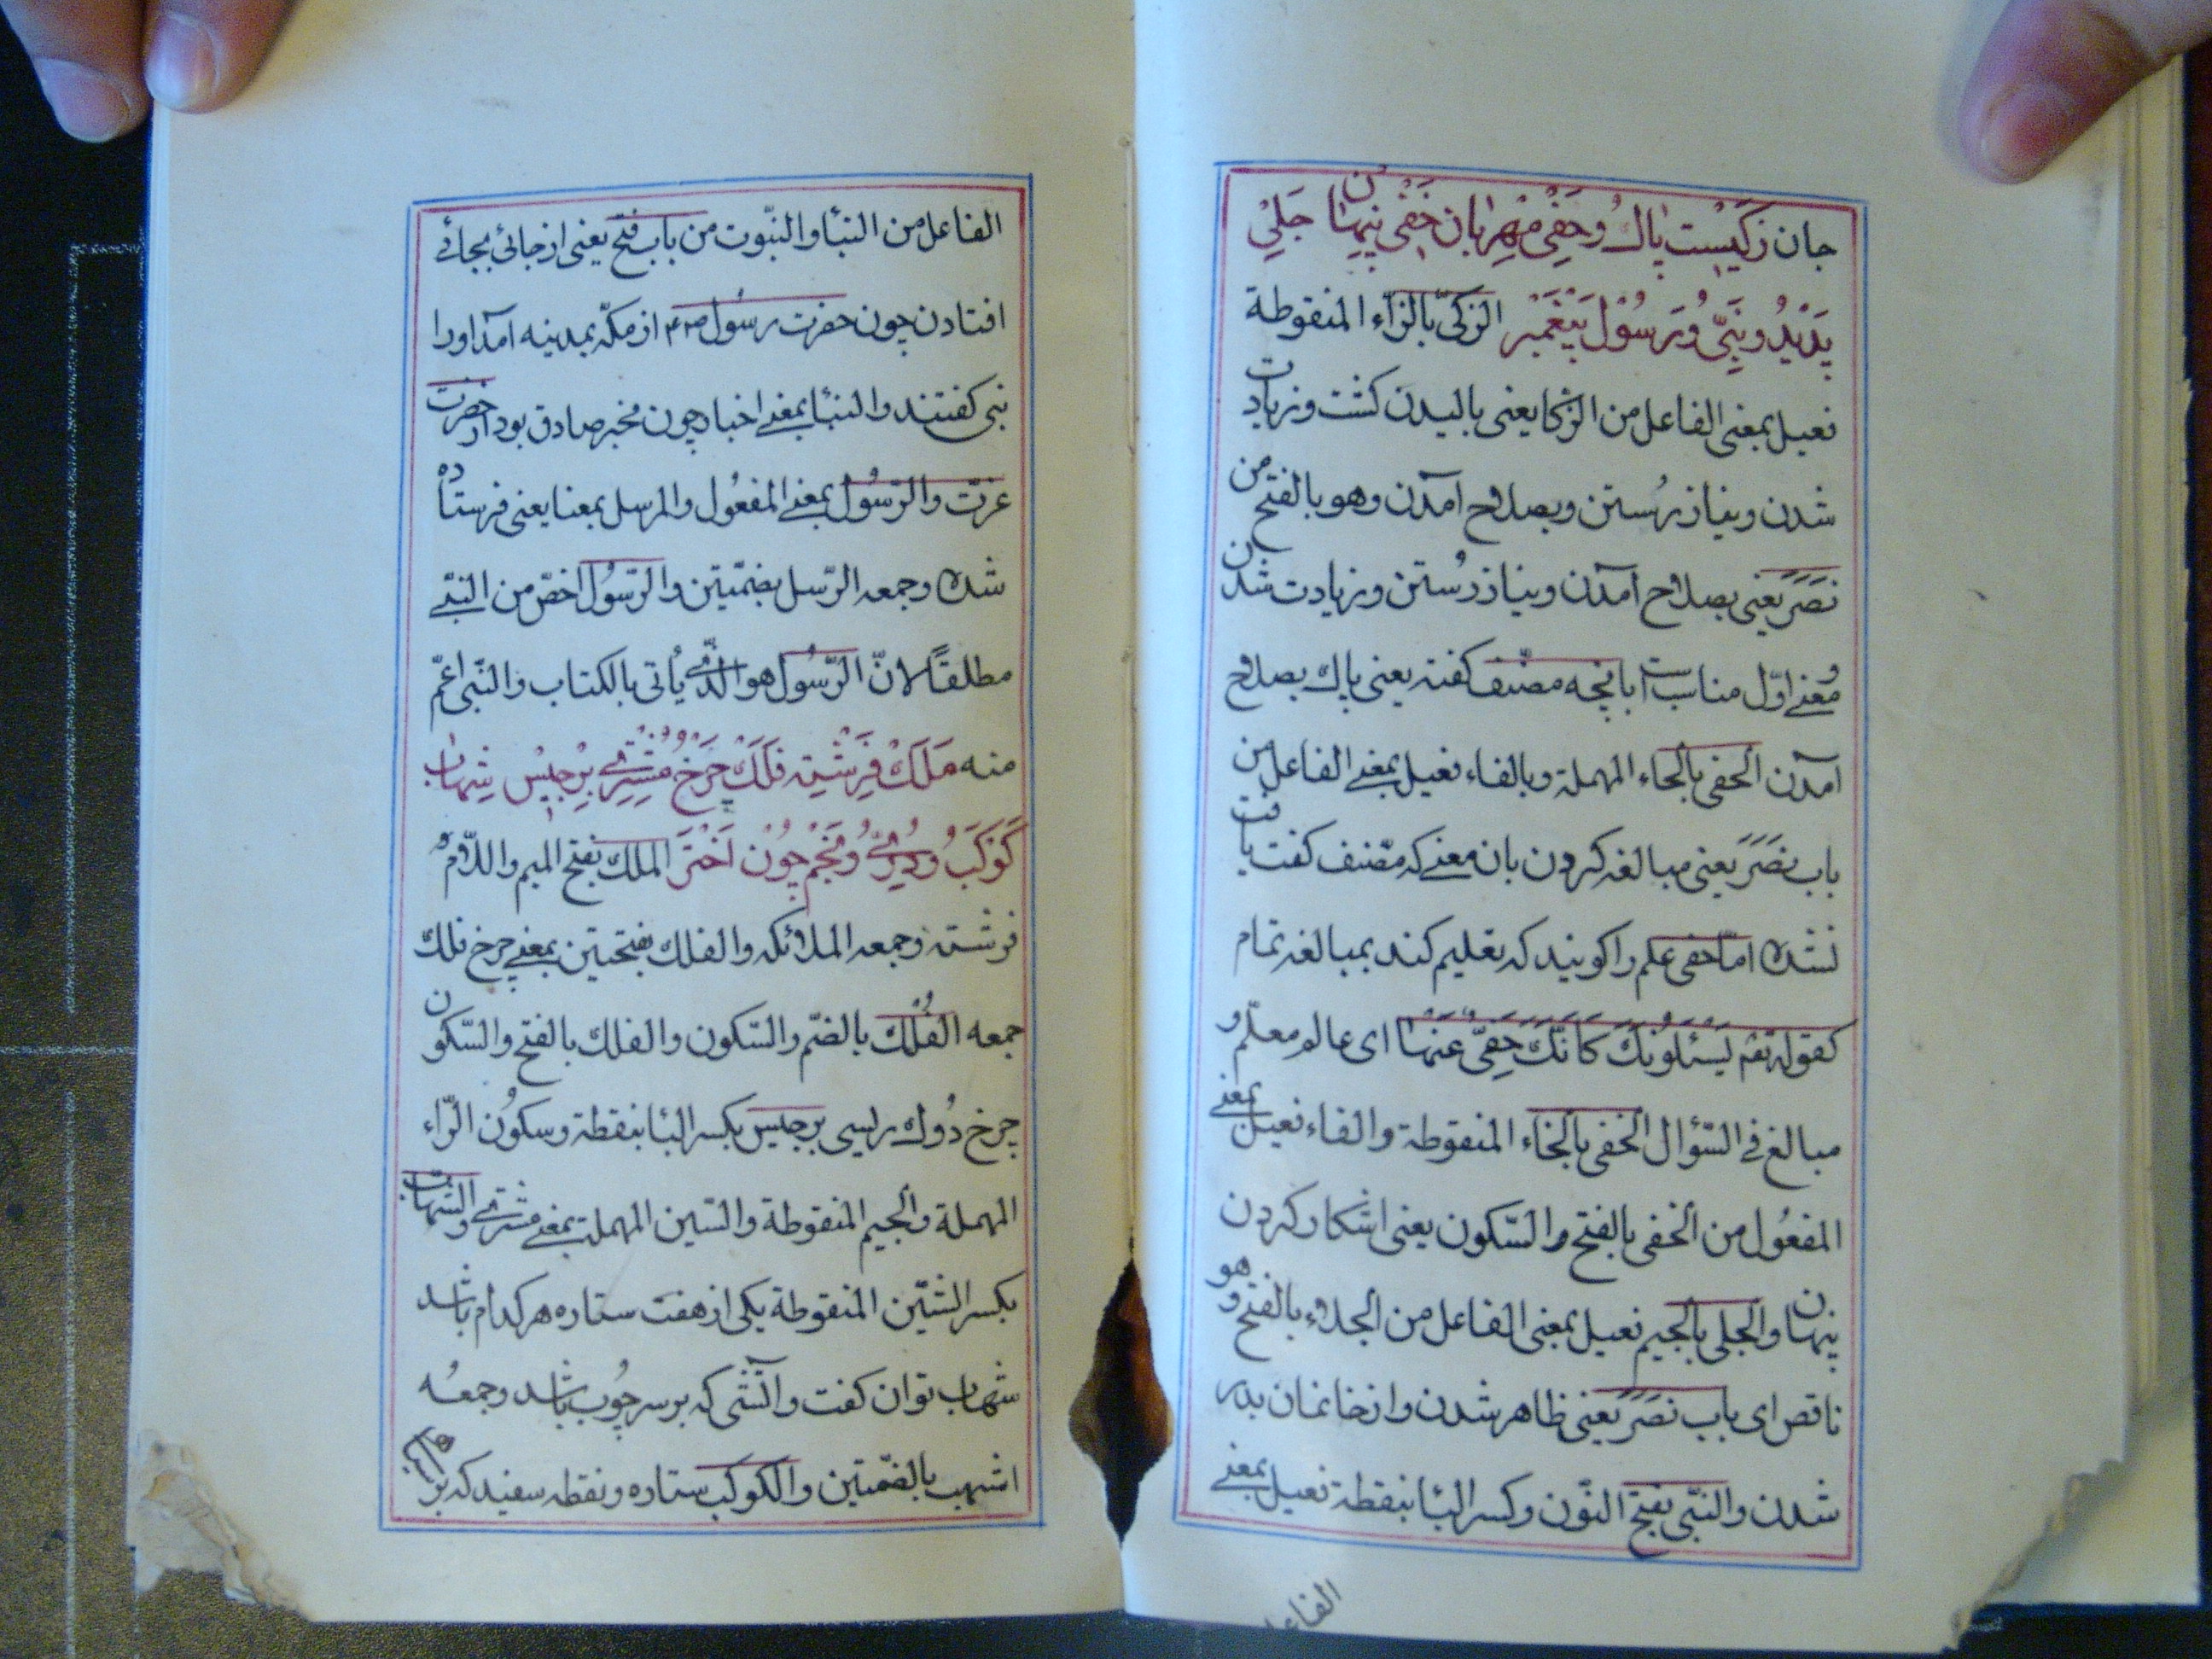 جان زَکیست پاك و حَفِی مهربان خَفِی پنهان جَلِی
پَدیدُ و نَبِیُّ و رَسُول پَیغَمبر الزکی بالزاء المنقوطة
فعیل بمعنی الفاعل من الزکا یعنی بالیدن کشت و زیادت
شدن و بناز رُستن و بصلاح آمدن و هو بالفتح من
نَصَرَ یعنی بصلاح آمدن و بناز رُستن و زیادت شدن
و معنے اوّل مناسبست بآنچه مصنف کفته یعنی پاك بصلاح
آمدن الحفی بالحاء المهملة و بالفاء فعیل بمعنے الفاعل من
باب نصَرَ یعنی مبالغه کردن بان معنے که مصنف کفت یافت
نشده امّا حفی علم را کویند که تعلیم کند بمبالغه تمام
کقوله تعم یَسئَلُونَكَ کَاَنَّكَ حَفِیٌّ عَنهَا ای عالم معلّم و
مبالغ فی السّؤال الخفی بالخاء المنقوطة و الفاء فعیل بمعنے
المفعُول من الخفی بالفتح و السّکون یعنی اشکار کردن
پنهان و الجلی بالجیم فعیل بمعنی الفاعل من الجلاء بالفتح و هو
ناقص ای باب نَصَرَ یعنی ظاهر شدن و از خانمان بدر
شدن و النبّی بفتح النّون و کسر البا بنقطة فعیل بمعنے
الفاعل
الفاعل من النبأ و النبّوت من باب فتح یعنی از جائی بجائے
افتادن چون حضرت رسُول صم از مکّه بمدینه آمد او را
نبی کفتند و النبأ بمعنے اخبار چون مخبر صادق بود از حضرت
عزت و الرّسُول بمعنے المفعُول و المرسل بمعنا یعنی فرستاده
شده و جمعه الرّسل بضمّتین و الرّسُول اخصّ من النبّے
مطلقاً لانّ الرّسُول هو الّذے یأتی بالکتاب و النّبی اعمّ
منه مَلَكْ فِرِشْتِه فَلَكْ چَرخ مُشتِرے بِرجِیسْ شِهاب
کَوکَبُ و دُرِّےُ و نَجم چُون اَختَر الملك بفتح المیم و اللّام
فرشته و جمعه الملائکه و الفلك بفتحتین بمعنے چرخ فلك
جمعه الفُلك بالضمّ و السّکون و الفلك بالفتح و السّکون
چرخ دُوك ریسی برجیس بکسر البا بنقطة و سکُون الرّاء
المهملة و الجیم المنقوطة و السّین المهملة بمعنے مشترے و الشهاب
بکسر الشّین المنقوطة یکی از هفت ستاره هر کدام باشد
شهاب توان کفت و آتشی که بر سر چُوب باشد و جمعُه
اشهب بالضمّتین و الکوکب ستاره و نقطه سفید که بر